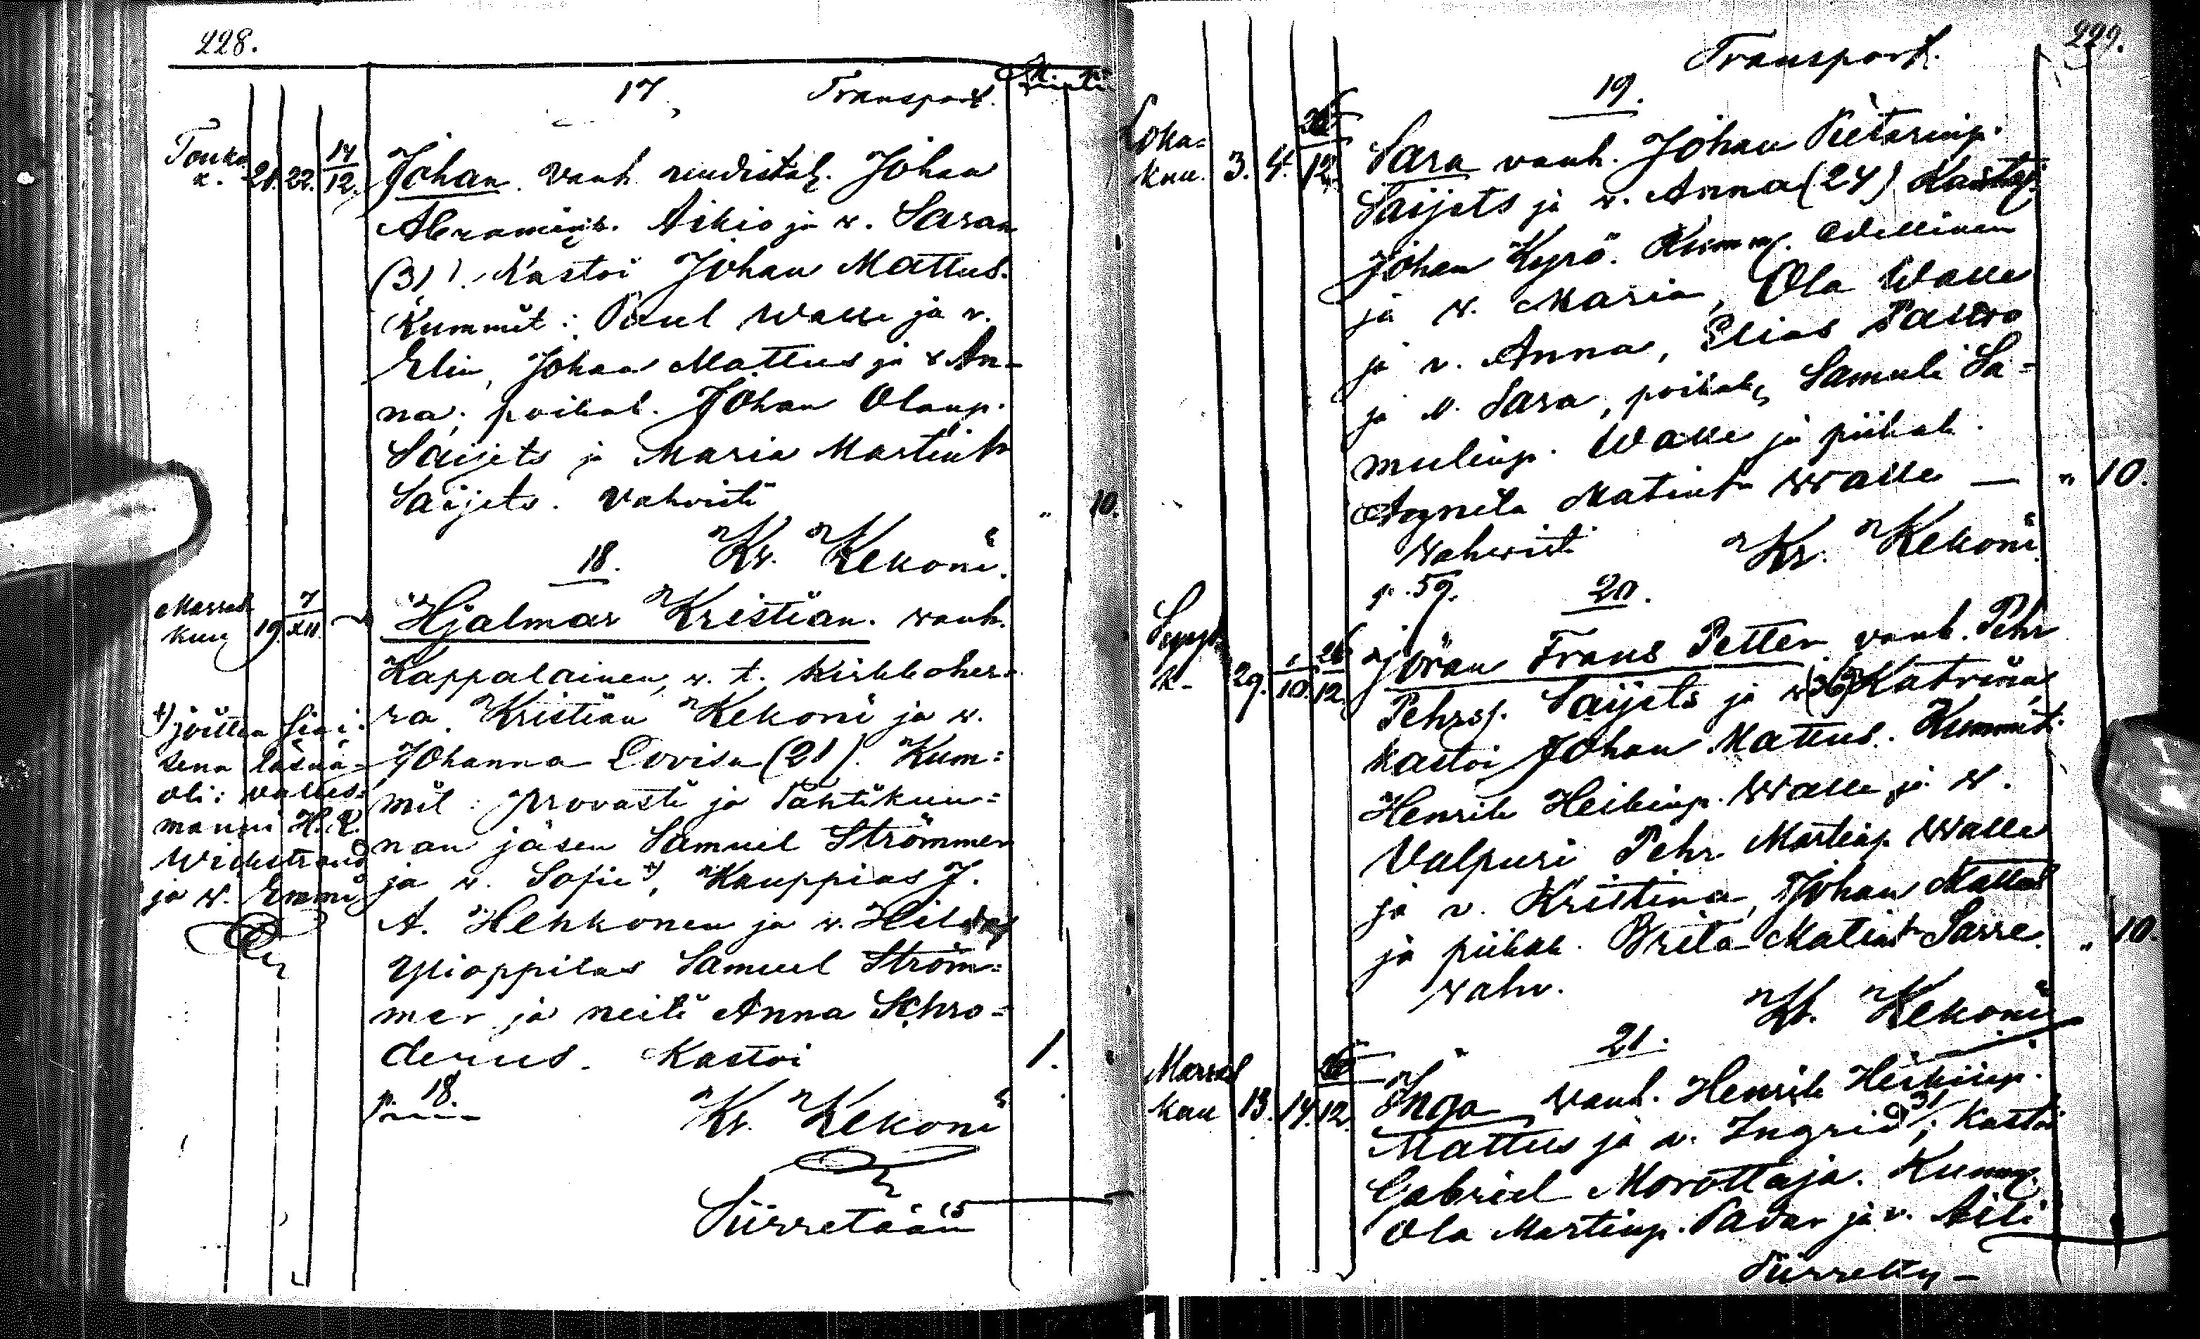 228.
17 Transport.
Touko
k. 21. 22. 14/12. Johan. vanh. uudistal. Johan
Abraminp. Aikio ja v. Saran
(31). Kastoi Johan Mattus.
Kummit: Paul Walle ja v.
Elin, Johan Mattus ja v. An-
na; poikal. Johan Olanp.
Saijets ja Maria Martint
Saijets. Vahvisti " 10.
18. Kr. Kekoni.
Marras
kuu 19. 7/XII. Hjalmar Kristian. vanh.
Kappalainen, v. t. Kirkkoher-
ra Kristian Kekoni ja v.
Johanna Lovisa (21). Kum=
mit: Provasti ja
nan jäsen Samuel Strömmer
ja v. Sofie x), Kauppias J.
A. Hehkonen ja v. Hilda,
Ylioppilas Samuel Ström=
mer ja neiti Anna Schro=
derus. Kastoi 1.
p. 18. Kr. Kekoni
Siirretään
x) joitten siai-
sena läsnä-
oli: valles-
manni H.
Wickstrand
ja v. Emmi
229.
Transport.
19.
Loka=
kuu. 3. 4. 26/12. Sara vanh. Johan Pietarinp.
Saijets ja v. Anna (24) Kastoi
Johan Kyrö. Kumm. edellinen
ja v. Maria, Ola Walle
ja v. Anna, Elias Paltto
ja v. Sara, poikal. Samuli Sa=
mulinp. Walle ja piikal.
Agneta Matint Walle — " 10.
Vahvisti Kr. Kekoni.
p. 59. 20.
Syysk
k. 29. 1/10. 26/12. Jöran Frans Petter vanh. Pehr
Pehrsp. Saijets ja v. (36) Katrina
Kastoi Johan Mattus. Kummit:
Henrik Heikinp. Walle ja v.
Valpuri Pehr Martinp. Walle
ja v. Kristina, Johan Mattus
ja piikal. Brita Matint Sarre. " 10.
vahv.
Kr. Kekoni
21.
Marras
kuu 13. 14. 26/12. Inga vanh. Henrik Heikinp.
Mattus ja v. Ingrid 31; Kastoi
Gabriel Morottaja. Kumm.
Ola Martinp. Padar ja v. Aili
Siirretty —